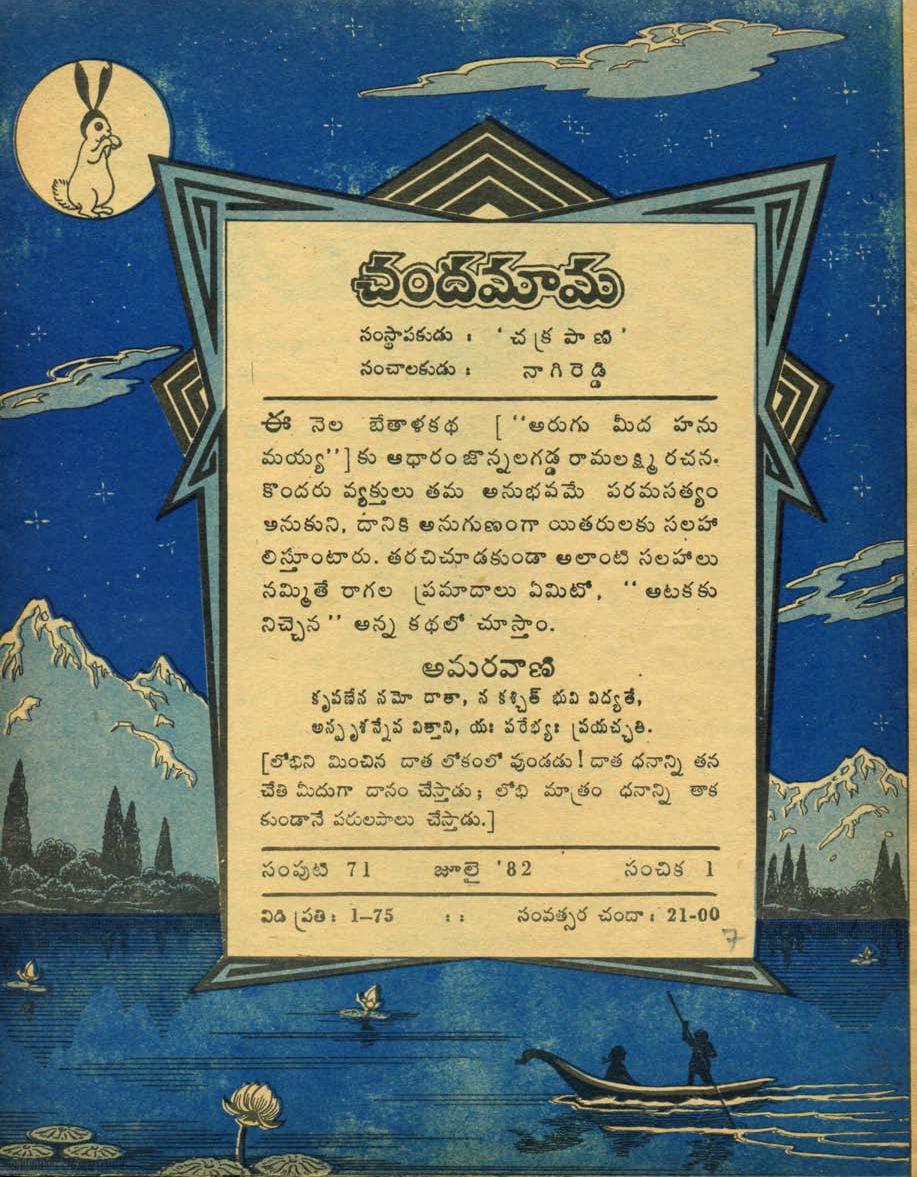 చందమామ
సంస్థాపకుడు : ' చ క్ర పా ణి '
సంచాలకుడు : నా గి రె డ్డి
ఈ నెల బేతాళకథ [ "అరుగు మీద హను
మయ్య"] కు ఆధారం జొన్నలగడ్డ రామలక్ష్మి రచన.
కొందరు వ్యక్తులు తమ అనుభవమే పరమసత్యం
అనుకుని, దానికి అనుగుణంగా యితరులకు సలహా
లిస్తూంటారు. తరచిచూడకుండా అలాంటి సలహాలు
నమ్మితే రాగల ప్రమాదాలు ఏమిటో, " అటకకు
నిచ్చెన " అన్న కథలో చూస్తాం.
అమరవాణి
కృపణేన సమో దాతా, న కశ్చిత్ భువి విద్యతే,
అస్పృశన్నేవ విత్తాని, యః పరేభ్యః ప్రయచ్ఛతి.
[లోభిని మించిన దాత లోకంలో వుండడు! దాత ధనాన్ని తన
చేతి మీదుగా దానం చేస్తాడు ; లోభి మాత్రం ధనాన్ని తాక
కుండానే పరులపాలు చేస్తాడు.]
సంపుటి 71 జూలై '82 సంచిక 1
విడి ప్రతి : 1–75 : : సంవత్సర చందా : 21-00
7